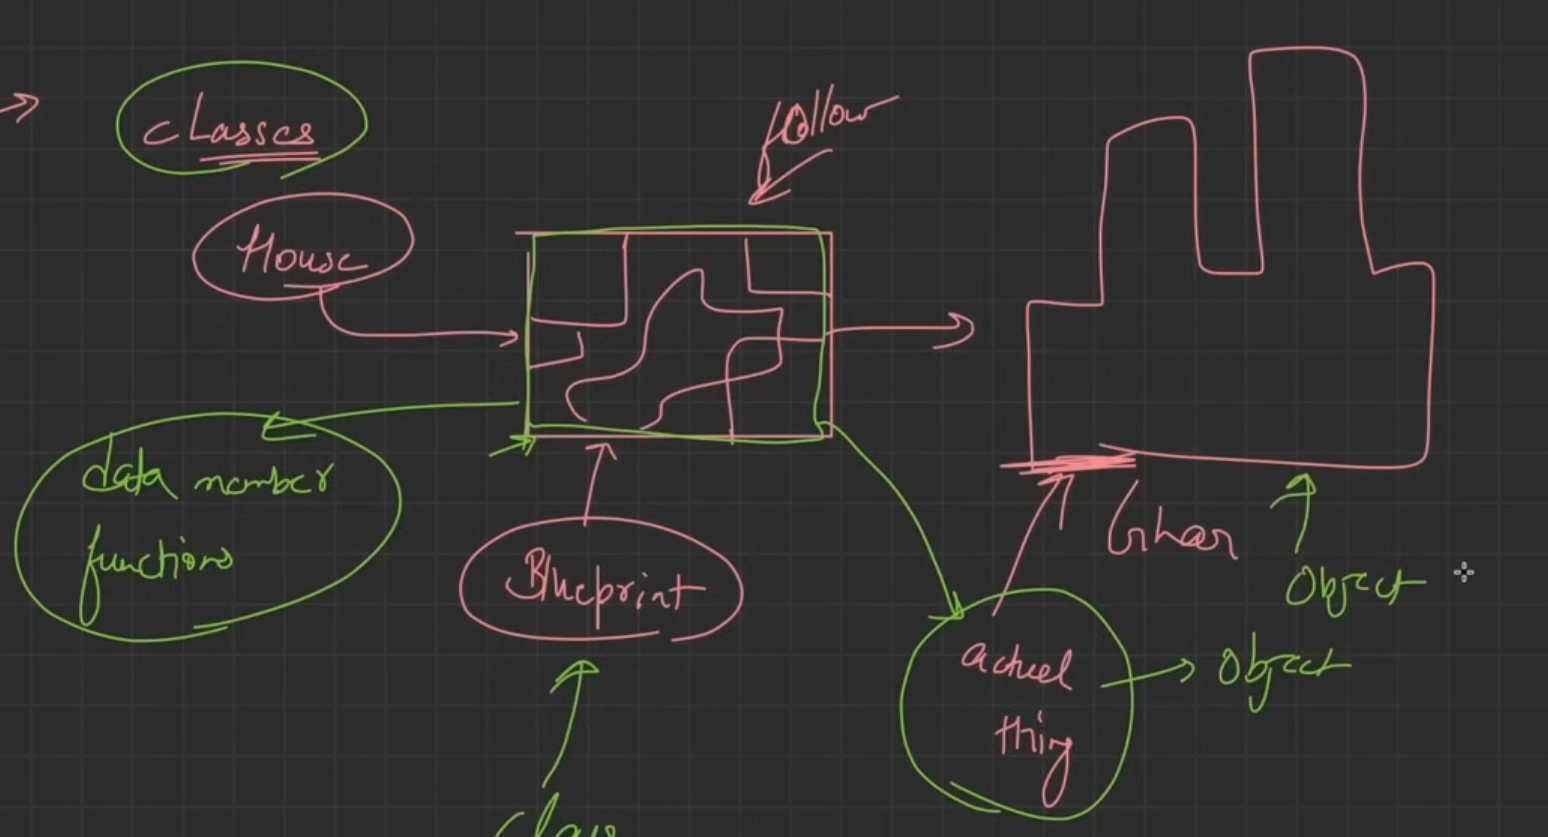 classes
follow
House
data member
functions
Blueprint
Ghar
Object
actual
thing
Object
class